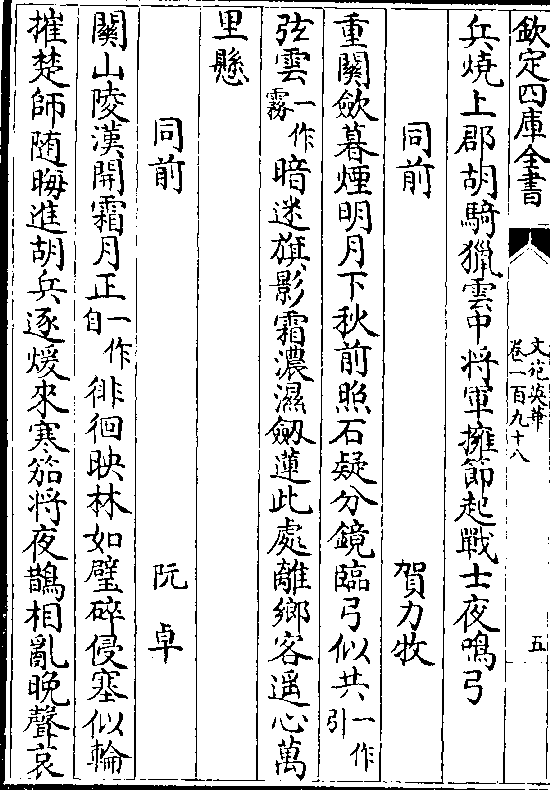 欽定四庫全書
文苑英華
卷一百九十八
五
兵燒上郡胡騎獵雲中將軍擁節起戰士夜鳴弓
同前 賀力牧
重關歛暮煙明月下秋前照石疑分鏡臨弓似共一作引
弦雲一作霧暗迷旗影霜濃濕劔蓮此處離鄉客遥心萬
里懸
同前 阮卓
關山陵漢開霜月正一作自徘徊映林如璧碎侵塞似輪
摧楚師随晦進胡兵逐煖來寒笳將夜鵲相亂晚聲哀